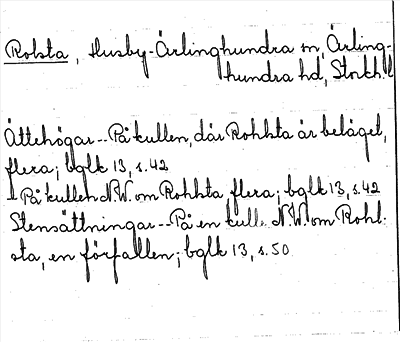 Rolsta, Husby-Ärlinghundra sn, Ärling-
hundra hd, Stockh. l
Ättehögar -- På kullen, där Rohlsta är beläget,
flera; bglk 13, s. 42
- På kullen N.W. om Rohlsta flera; bglk 13, s. 42
Stensättningar -- På en kulle N.W. om Rohl-
sta, en förfallen; bglk 13, s. 50